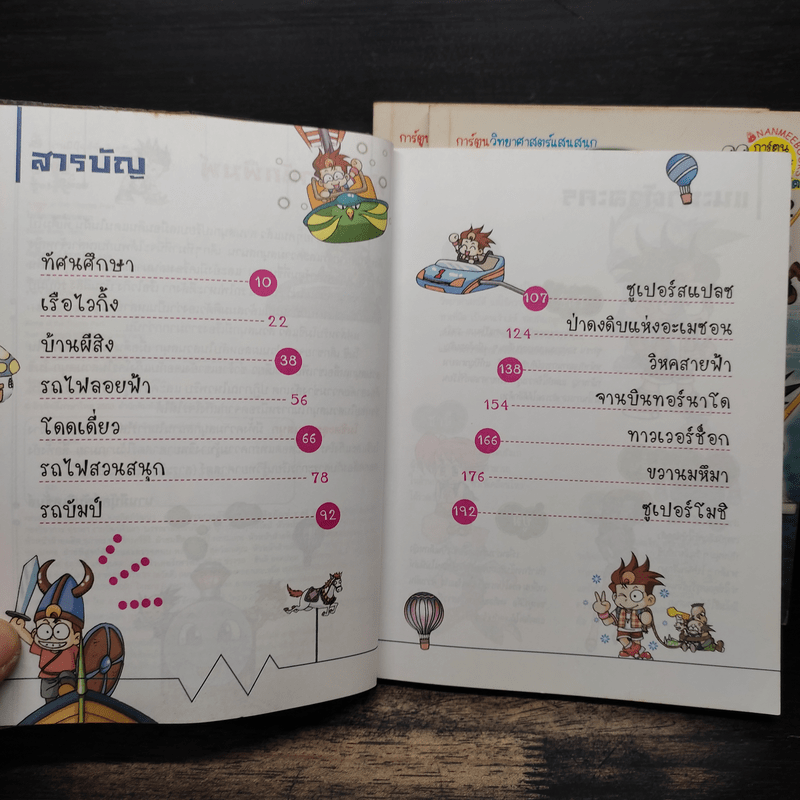 สารบัญ
ทัศนศึกษา 10
เรือไวกิ้ง 22
บ้านผีสิง 38
รถไฟลอยฟ้า 56
โดดเดี่ยว 66
รถไฟสวนสนุก 78
รถบัมป์ 92
การ์ตูน
การ์ตูนวิทยาศาสตร์แสนสนุก
NANMEEBOOKS
การ์ตูน
107 ซูเปอร์สแปลช
124 ป่าดงดิบแห่งอะเมซอน
138 วิหคสายฟ้า
154 จานบินทอร์นาโด
166 ทาวเวอร์ช็อก
176 ขวานมหึมา
192 ซูเปอร์โมชิ